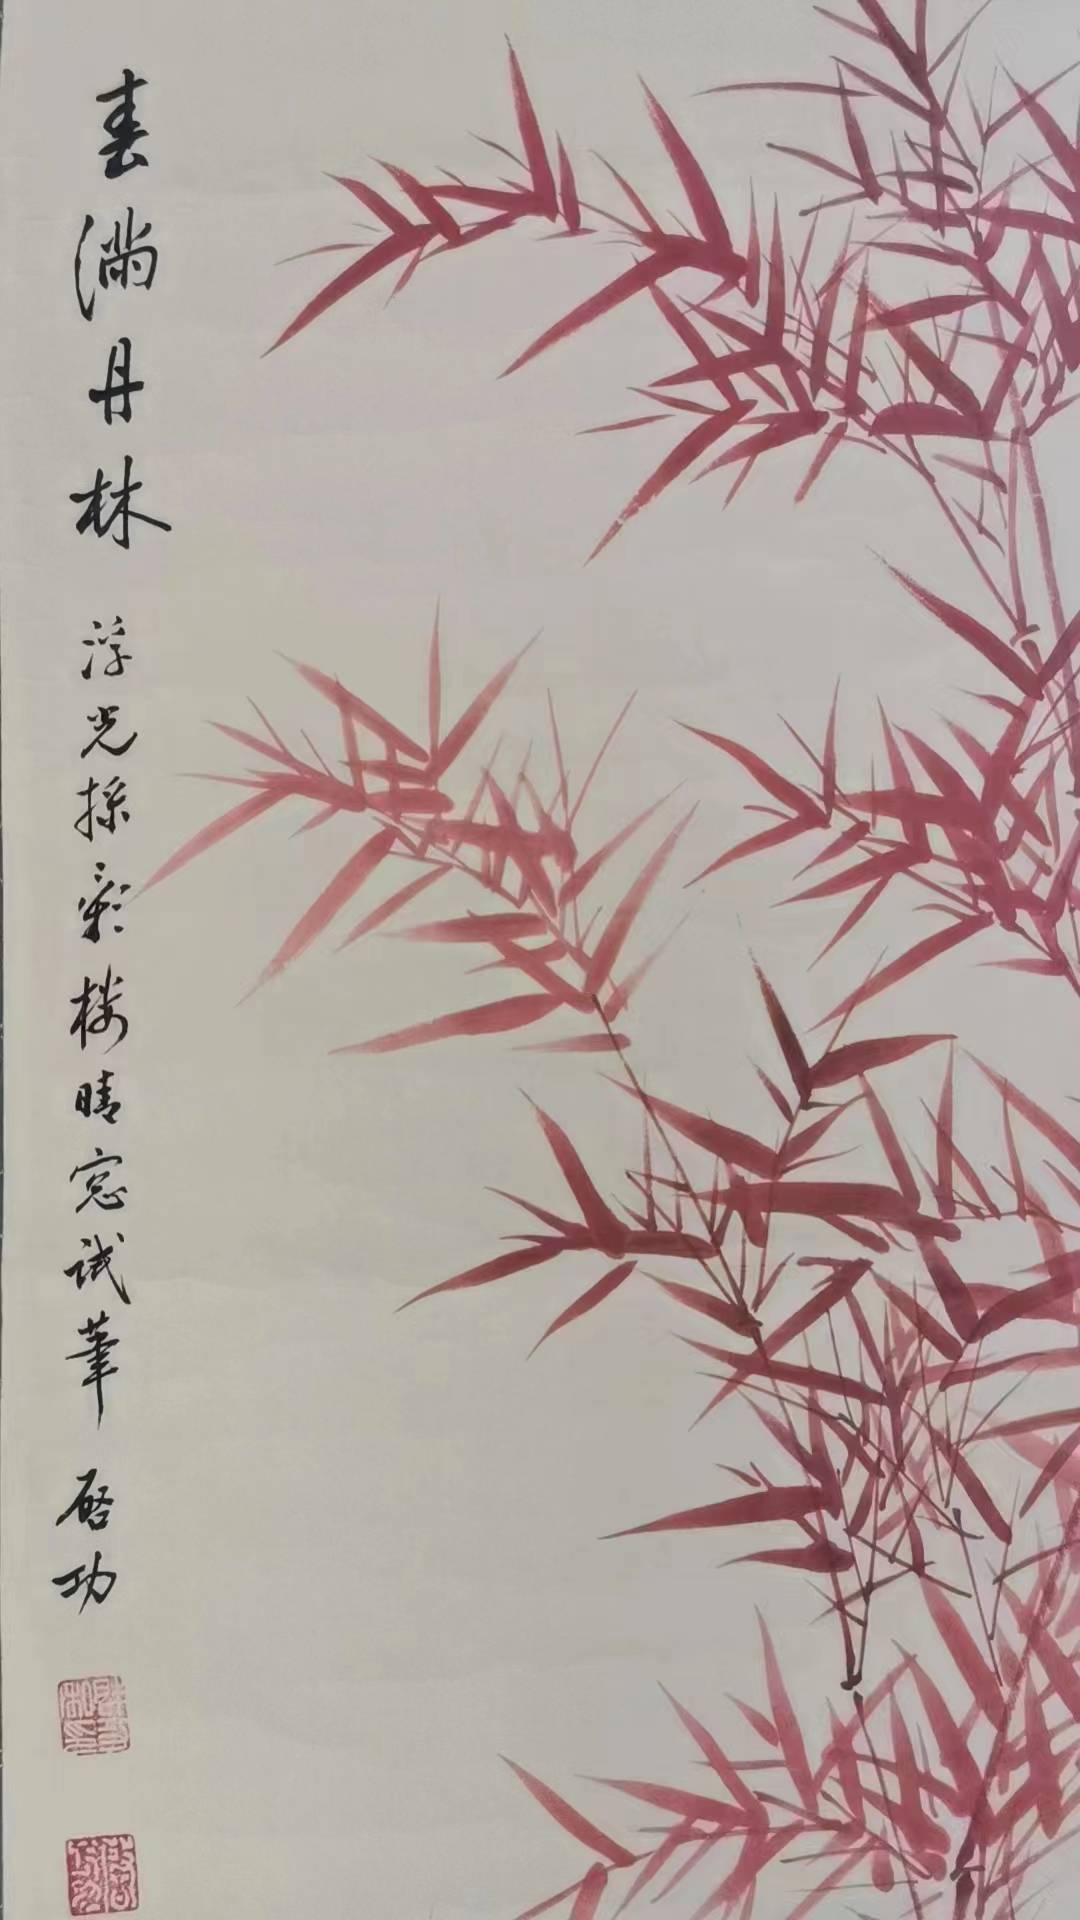 春满丹林 浮光採彩楼晴窓试筆 启功